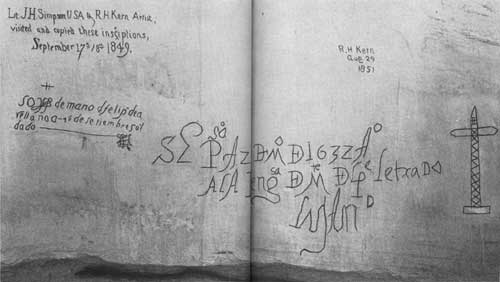 Lt J.H. Simpson USA & R.H. Kern Artist,
visited and copied these inscriptions,
September 17th 18th 1849.
R.H. Kern
Aug 29
1851
de mano d felipe dea
rellano a 16 de setiembre sol
dado
Se Pasº A 23 D Mº D 1632 Aº
A lA Eng sa D Mte D Pe Letrado
Lujan